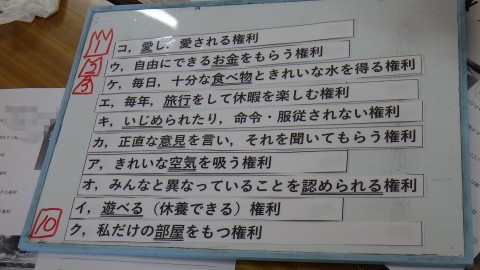 1
コ，愛し，愛される権利
2
ウ，自由にできるお金をもらう権利
3
ケ，毎日，十分な食べ物ときれいな水を得る権利
エ，毎年，旅行をして休暇を楽しむ権利
キ，いじめられたり，命令・服従されない権利
カ，正直な意見を言い，それを聞いてもらう権利
ア，きれいな空気を吸う権利
オ，みんなと異なっていることを認められる権利
イ，遊べる（休養できる）権利
10
ク，私だけの部屋をもつ権利